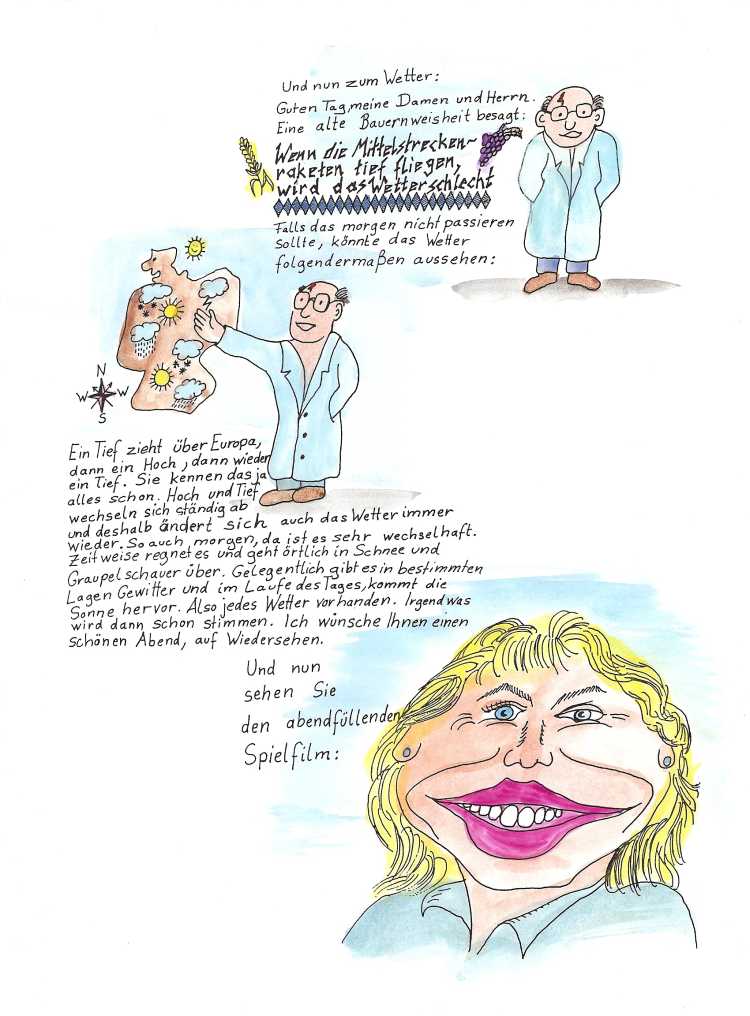 Und nun zum Wetter:
Guten Tag, meine Damen und Herrn.
Eine alte Bauernweisheit besagt:
Wenn die Mittelstrecken~
raketen tief fliegen,
wird das Wetter schlecht
Falls das morgen nicht passieren
sollte, könnte das Wetter
folgendermaßen aussehen:
N
W W
S
Ein Tief zieht über Europa,
dann ein Hoch, dann wieder
ein Tief. Sie kennen das ja
alles schon. Hoch und Tief
wechseln sich ständig ab
und deshalb ändert sich auch das Wetter immer
wieder. So auch morgen, da ist es sehr wechselhaft.
Zeitweise regnet es und geht örtlich in Schnee und
Graupelschauer über. Gelegentlich gibt es in bestimmten
Lagen Gewitter und im Laufe des Tages, kommt die
Sonne hervor. Also jedes Wetter vorhanden. Irgendwas
wird dann schon stimmen. Ich wünsche Ihnen einen
schönen Abend, auf Wiedersehen.
Und nun
sehen Sie
den abendfüllenden
Spielfilm: